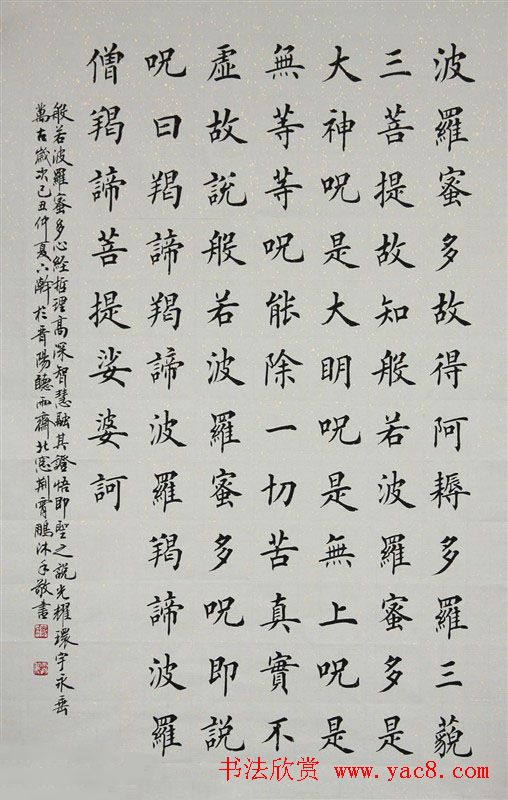 波羅蜜多故得阿耨多羅三藐
三菩提故知般若波羅蜜多是
大神呪是大明呪是無上呪是
無等等呪能除一切苦真實不
虛故說般若波羅蜜多呪即說
呪曰羯諦羯諦波羅羯諦波羅
僧羯諦菩提娑婆訶
般若波羅蜜多心經哲理高深智慧融其證悟即聖之說光耀環宇永垂
萬古歲次己丑仲夏下澣於晉陽聽雨齋北窓荊霄鵬沐手敬書
书法欣赏 www.yac8.com